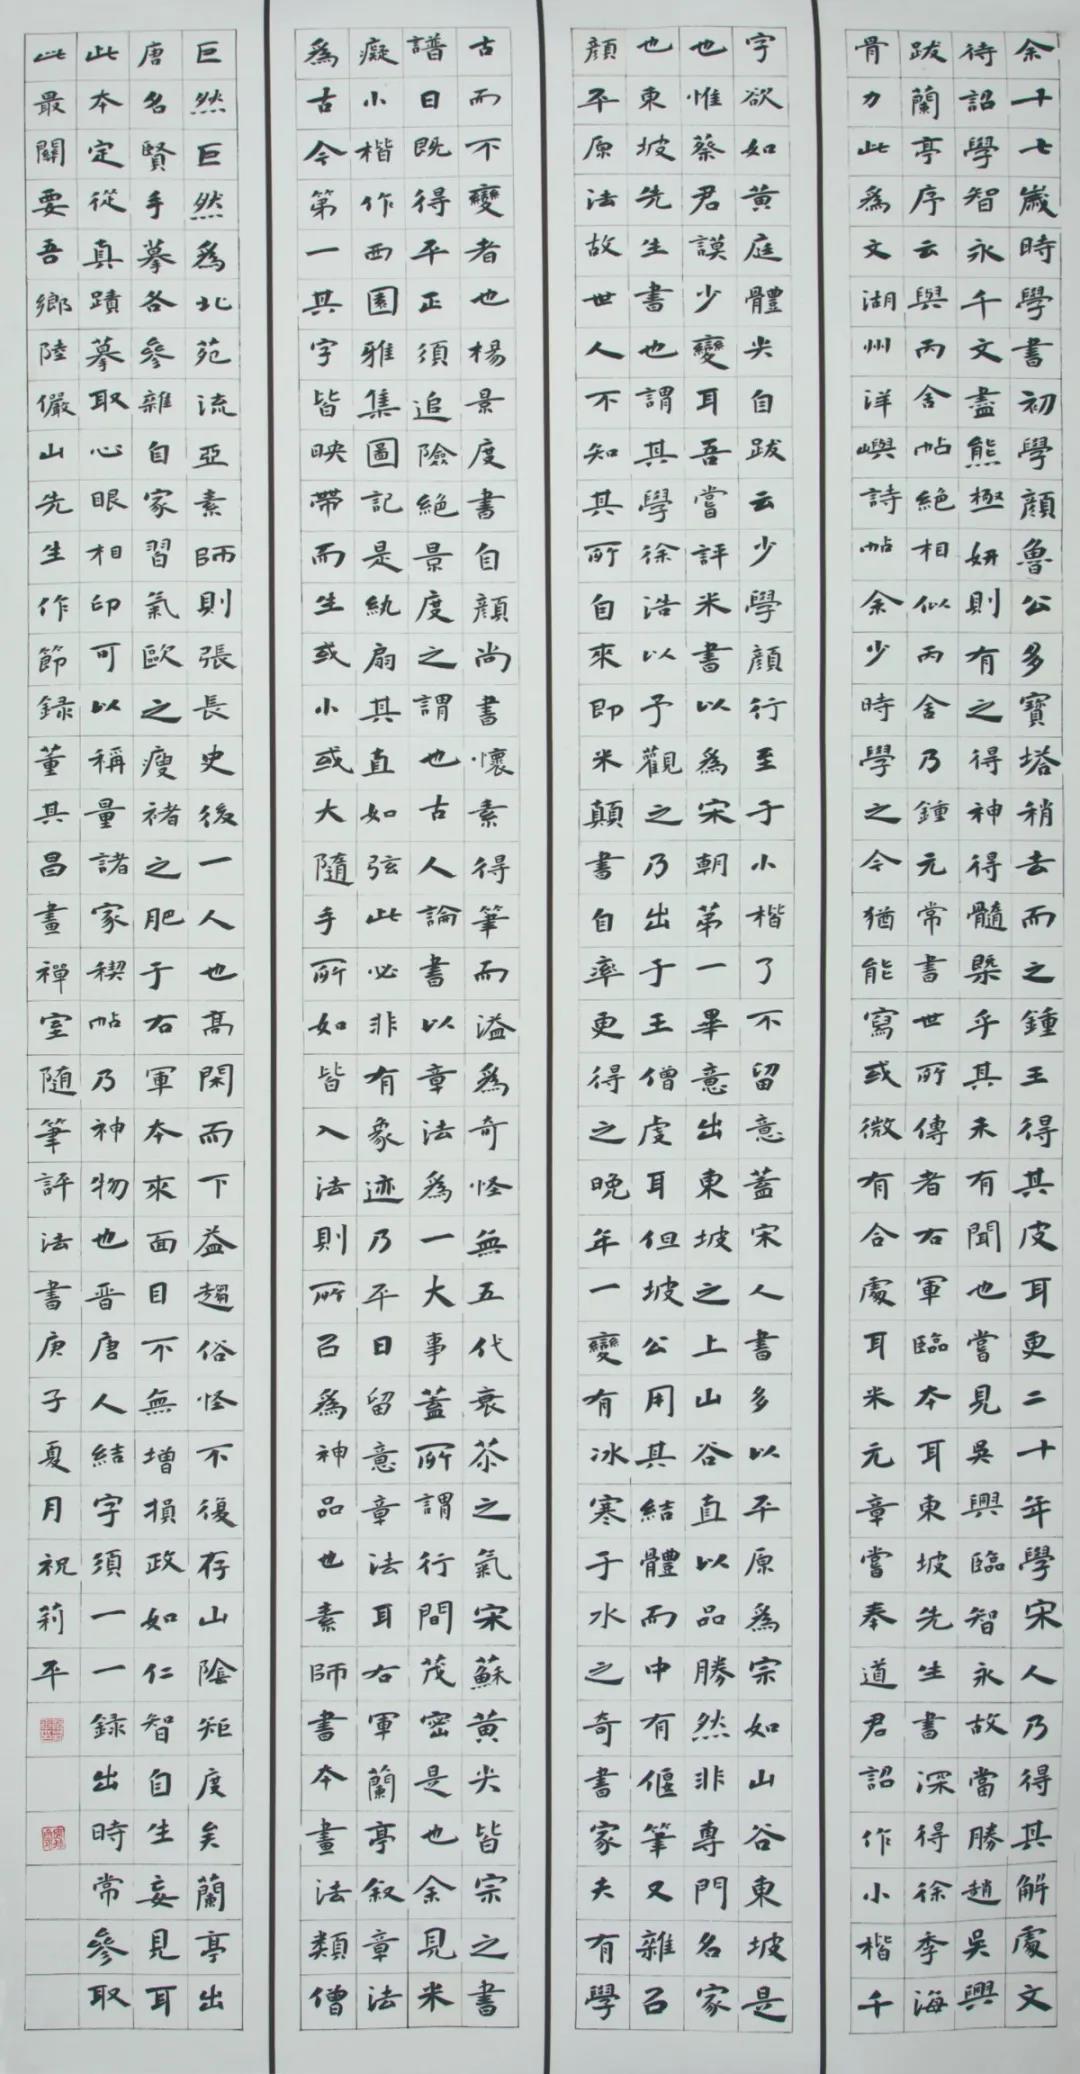 余十七歲時學書初學顏魯公多寶塔稍去而之鍾王得其皮耳更二十年學宋人乃得其解處文
待詔學智永千文盡熊極妍則有之得神得髓槩乎其未有聞也嘗見吳興臨智永故當勝趙吳興
跋蘭亭序云與丙舍帖絕相似丙舍乃鍾元常書世所傳者右軍臨本耳東坡先生書深得徐季海
骨力此為文湖州洋嶼詩帖余少時學之今猶能寫或微有合處耳米元章嘗奉道君詔作小楷千
字欲如黃庭體尖自跋云少學顏行至于小楷了不留意蓋宋人書多以平原為宗如山谷東坡是
也惟蔡君謨少變耳吾嘗評米書以為宋朝第一畢意出東坡之上山谷直以品勝然非專門名家
也東坡先生書也謂其學徐浩以予觀之乃出于王僧虔耳但坡公用其結體而中有偃筆又雜召
顏平原法故世人不知其所自來即米顛書自率更得之晚年一變有冰寒于水之奇書家夫有學
古而不變者也楊景度書自顏尚書懷素得筆而溢為奇怪無五代衰苶之氣宋蘇黃尖皆宗之書
譜曰既得平正須追險絕景度之謂也古人論書以章法為一大事蓋所謂行間茂密是也余見米
癡小楷作西園雅集圖記是紈扇其直如弦此必非有象迹乃平日留意章法耳右軍蘭亭叙章法
為古今第一其字皆映帶而生或小或大隨手所如皆入法則所召為神品也素師書本畫法類僧
巨然巨然為北苑流亞素師則張長史後一人也高閑而下益趨俗怪不復存山陰矩度矣蘭亭出
唐名賢手摹各參雜自家習氣歐之瘦褚之肥于右軍本來面目不無增損政如仁智自生妄見耳
此本定從真蹟摹取心眼相印可以稱量諸家禊帖乃神物也晉唐人結字須一一録出時常參取
此最關要吾鄉陸儼山先生作節録董其昌畫禪室隨筆評法書庚子夏月祝莉平